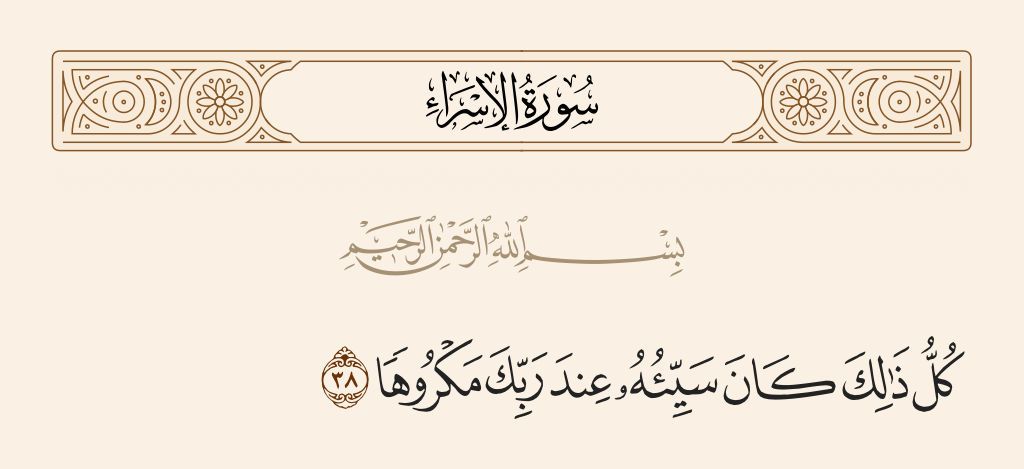 سُورَةُ الإِسْرَاءِ
بِسْمِ ٱللَّهِ ٱلرَّحْمَٰنِ ٱلرَّحِيمِ
كُلُّ ذَٰلِكَ كَانَ سَيِّئُهُۥ عِندَ رَبِّكَ مَكْرُوهًا ٣٨